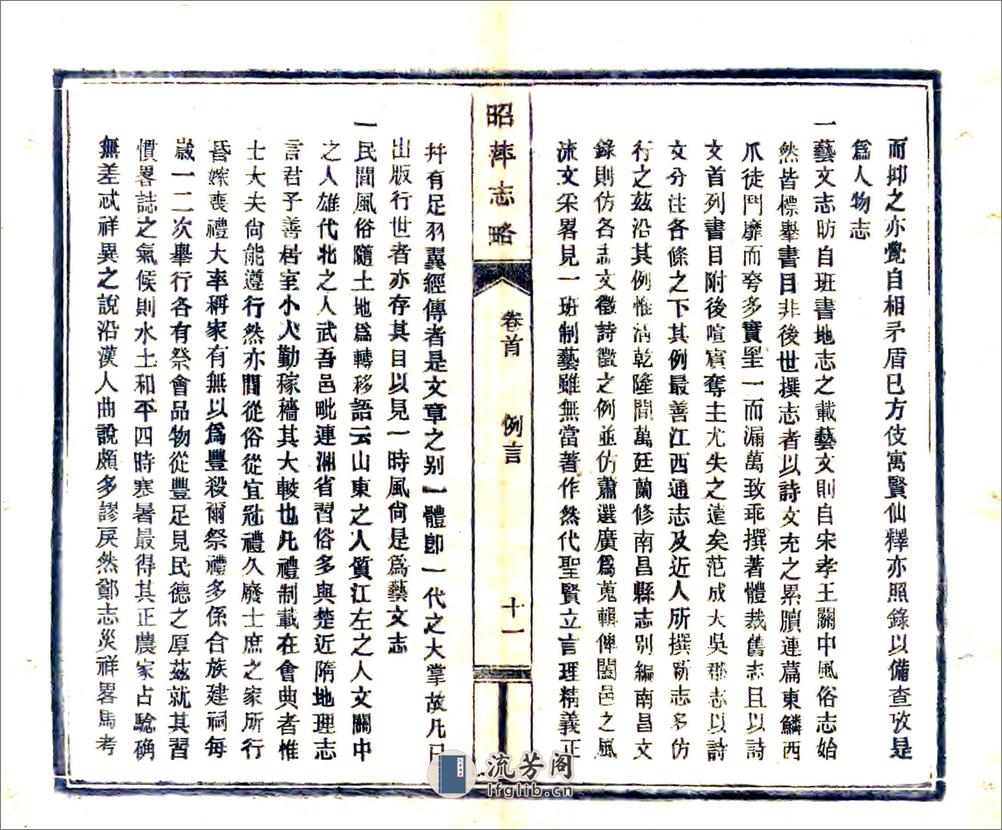 而抑之亦覺自相矛盾已方伎寓賢仙釋亦照錄以備查攷是
爲人物志
一藝文志昉自班書地志之載藝文則自宋孝王關中風俗志始
然皆標舉書目非後世撰志者以詩文充之累牘連篇東鱗西
爪徒鬥靡而夸多實罣一而漏萬致乖撰著體裁舊志且以詩
文首列書目附後喧賓奪主尤失之遠矣范成大吳郡志以詩
文分注各條之下其例最善江西通志及近人所撰新志多仿
行之茲沿其例惟淸乾隆間萬廷蘭修南昌縣志別編南昌文
錄則仿各志文徵詩徵之例並仿蕭選廣爲蒐輯俾闔邑之風
流文采畧見一班制藝雖無當著作然代聖賢立言理精義正
昭萍志略
卷首
例言
十一
幷有足羽翼經傳者是文章之别一體卽一代之大掌故凡已
出版行世者亦存其目以見一時風尙是爲藝文志
一民間風俗隨土地爲轉移語云山東之人質江左之人文關中
之人雄代北之人武吾邑毗連湘省習俗多與楚近隋地理志
言君子善居室小人勤稼穡其大較也凡禮制載在會典者惟
士大夫尙能遵行然亦間從俗從宜冠禮久廢士庶之家所行
昏嫁喪禮大率稱家有無以爲豐殺爾祭禮多係合族建祠每
歲一二次舉行各有祭會品物從豐足見民德之厚茲就其習
慣畧誌之氣候則水土和平四時寒暑最得其正農家占驗确
無差忒祥異之說沿漢人曲說頗多謬戾然鄭志災祥畧馬考
流芳阁
lfglib.cn